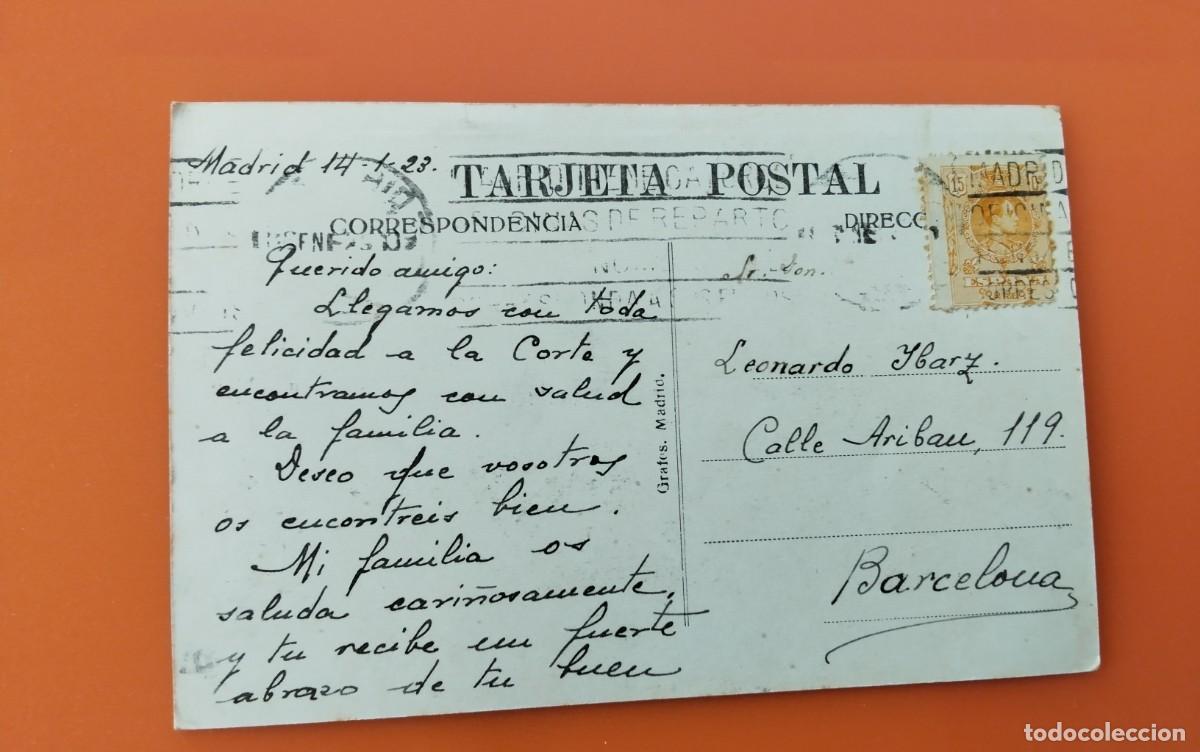 Madrid 14-1-23.
TARJETA POSTAL
CORRESPONDENCIA
DIRECC
15
MADRID
DE REPARTO
Querido amigo:
Llegamos con toda
felicidad a la Corte y
encontramos con salud
a la familia.
Deseo que vosotros
os encontreis bien.
Mi familia os
saluda cariñosamente,
y tu recibe un fuerte
abrazo de tu buen
Grafos. Madrid.
Sr. Don.
Leonardo Ybarz.
Calle Aribau, 119.
Barcelona
todocoleccion